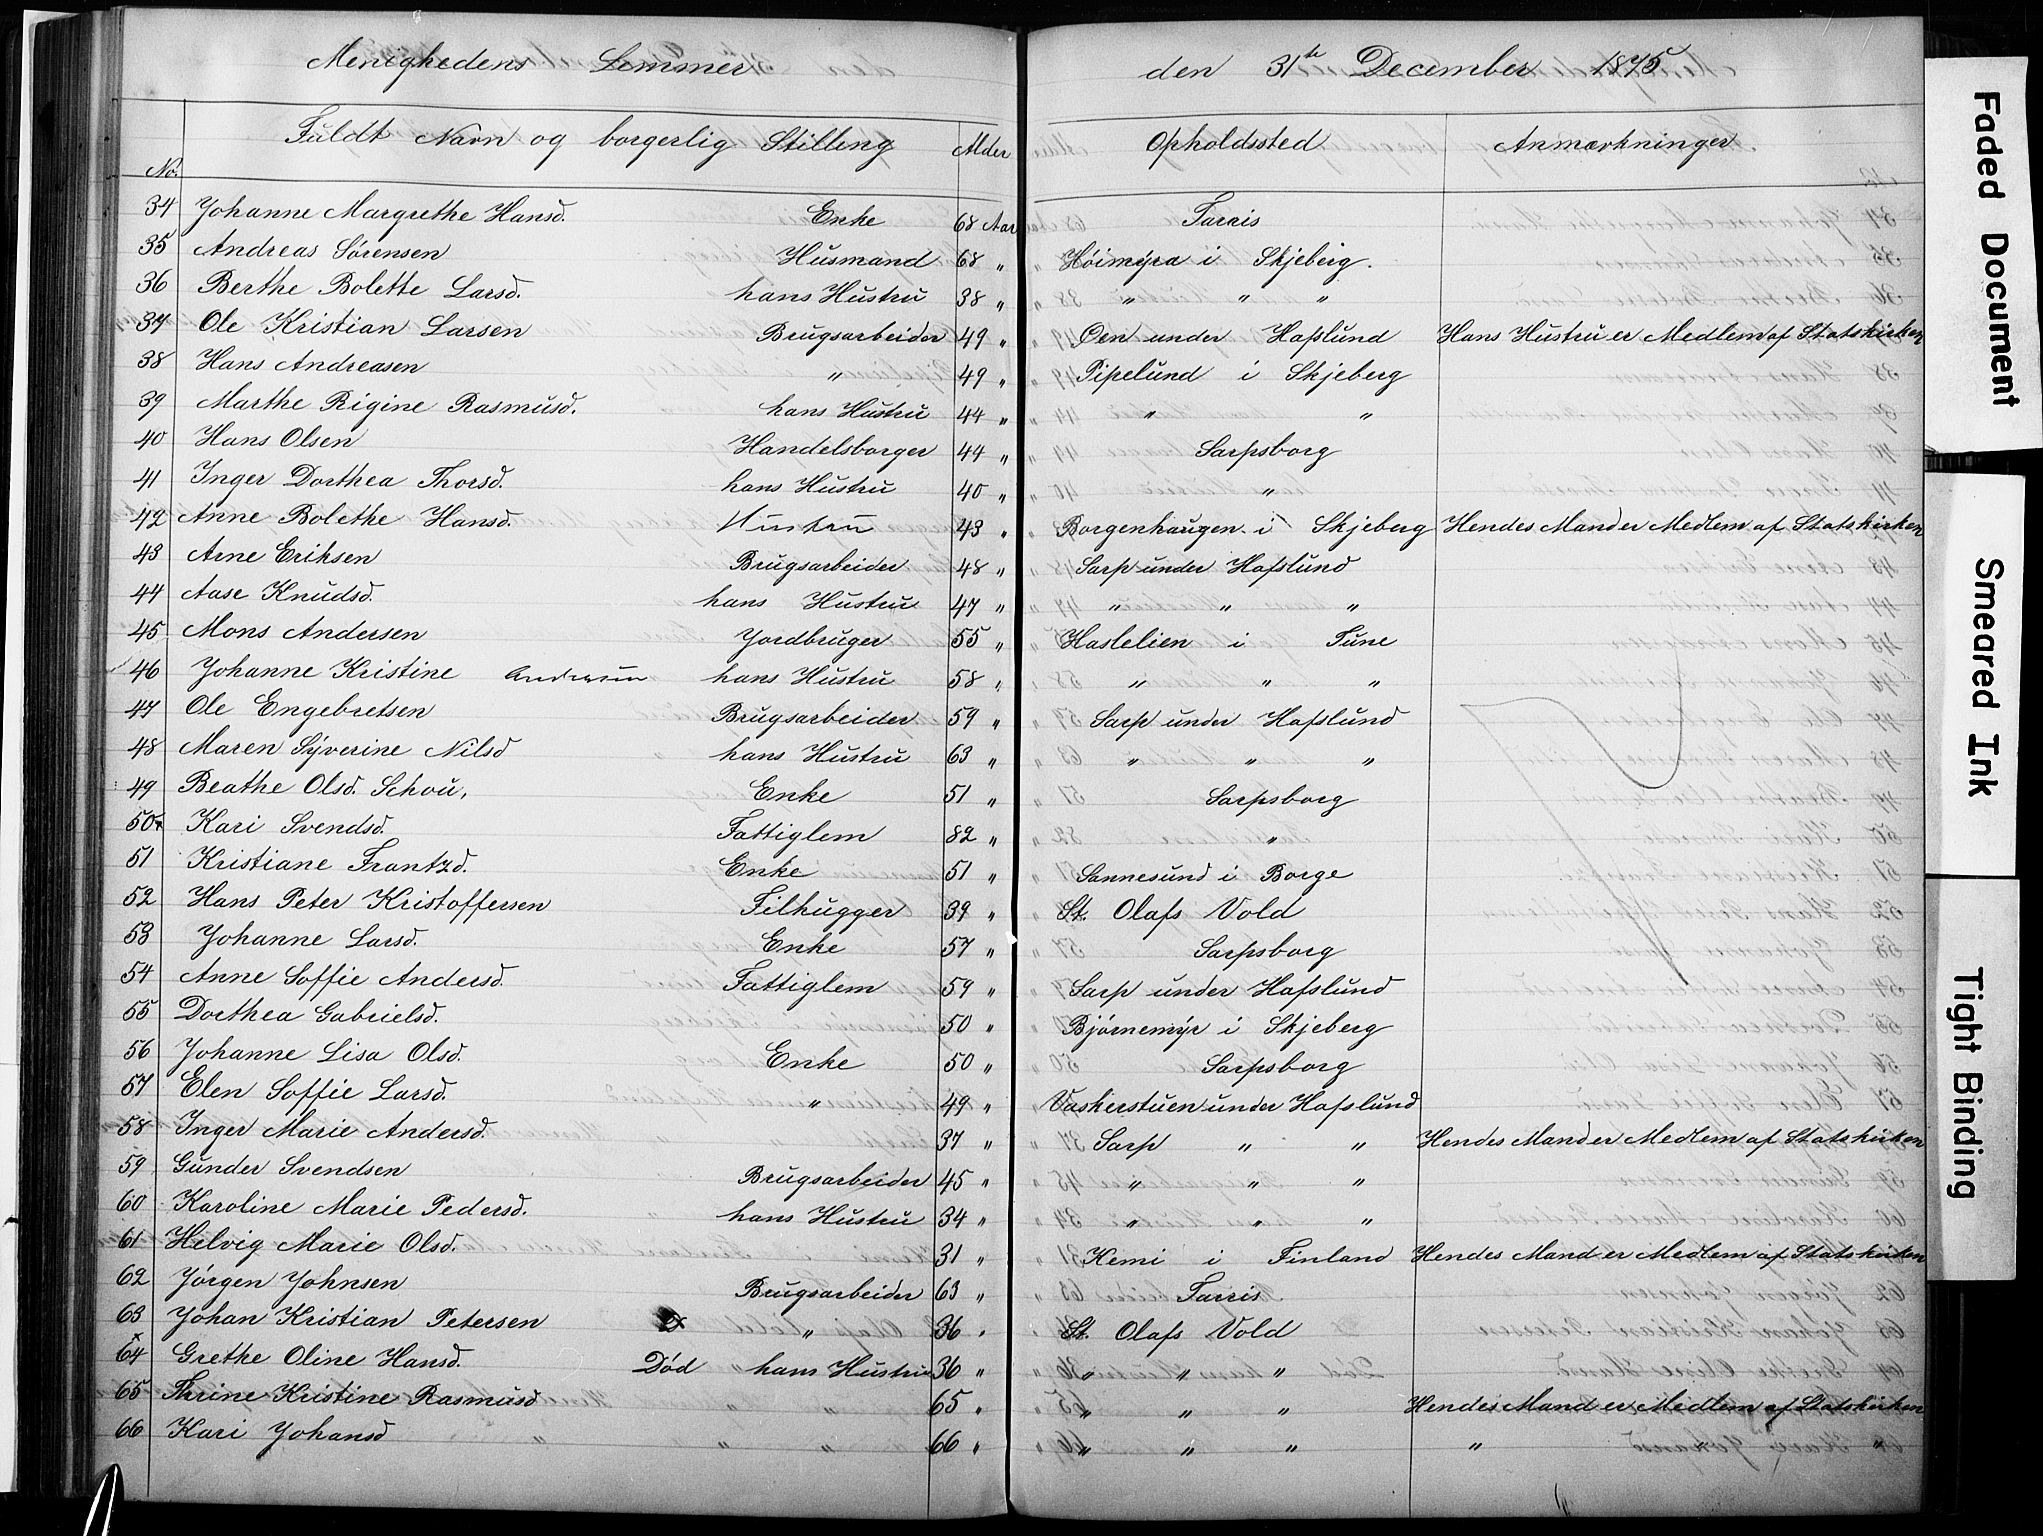 Menighedens Lemmer den 31te December 1875
No. Fuldt Navn og borgerlig Stilling Alder Opholdssted Anmærkninger
34 Johanne Margrethe Hansd. Enke 68 Aar Tarris
35 Andreas Sørensen Husmand 68 " Höimyra i Skjeberg.
36 Berthe Bolette Larsd. hans Hustru 38 " " " "
37 Ole Kristian Larsen Brugsarbeider 49 " Oen under Hafslund Hans Hustru er Medlem af Statskirken
38 Hans Andreasen " 49 " Pipelund i Skjeberg
39 Marthe Rigine Rasmusd. hans Hustru 44 " " "
40 Hans Olsen Handelsborger 44 " Sarpsborg
41 Inger Dorthea Thorsd. hans Hustru 40 " "
42 Anne Bolethe Hansd. Hustru 43 " Borgenhaugen i Skjeberg Hendes Mand er Medlem af Statskirken
43 Arne Eriksen Brugsarbeider 48 " Sarp under Hafslund
44 Aase Knudsd. hans Hustru 47 " " " "
45 Mons Andersen Jordbruger 55 " Haslelien i Tune
46 Johanne Kristine Andersen hans Hustru 58 " " " "
47 Ole Engebretsen Brugsarbeider 59 " Sarp under Hafslund
48 Maren Syverine Nilsd hans Hustru 63 " " " "
49 Beathe Olsd. Schou, Enke 51 " Sarpsborg
50 Kari Svendsd. Fattiglem 82 " "
51 Kristiane Frantzd. Enke 51 " Sannesund i Borge
52 Hans Peter Kristoffersen Filhugger 39 " St. Olafs Vold
53 Johanne Larsd. Enke 57 " Sarpsborg
54 Anne Soffie Andersd. Fattiglem 59 " Sarp under Hafslund
55 Dorthea Gabrielsd. 50 " Bjørnemyr i Skjeberg
56 Johanne Lisa Olsd. Enke 50 " Sarpsborg
57 Elen Soffie Larsd. " 49 " Vaskerstuen under Hafslund
58 Inger Marie Andersd. 37 " Sarp " " Hendes Mand er Medlem af Statskirken
59 Gunder Svendsen Brugsarbeider 45 " " " "
60 Karoline Marie Pedersd. hans Hustru 34 " " " "
61 Helvig Marie Olsd. 31 " Kemi i Finland Hendes Mand er Medlem af Statskirken
62 Jørgen Johnsen Brugsarbeider 63 " Tarris
63 Johan Kristian Petersen " 36 " St. Olafs Vold
64 Grethe Oline Hansd. Død hans Hustru 36 " " " "
65 Thrine Kristine Rasmusd " " 65 " " " " Hendes Mand er Medlem af Statskirken
66 Kari Johansd " " 66 " " " " " "
Faded Document
Smeared Ink
Tight Binding